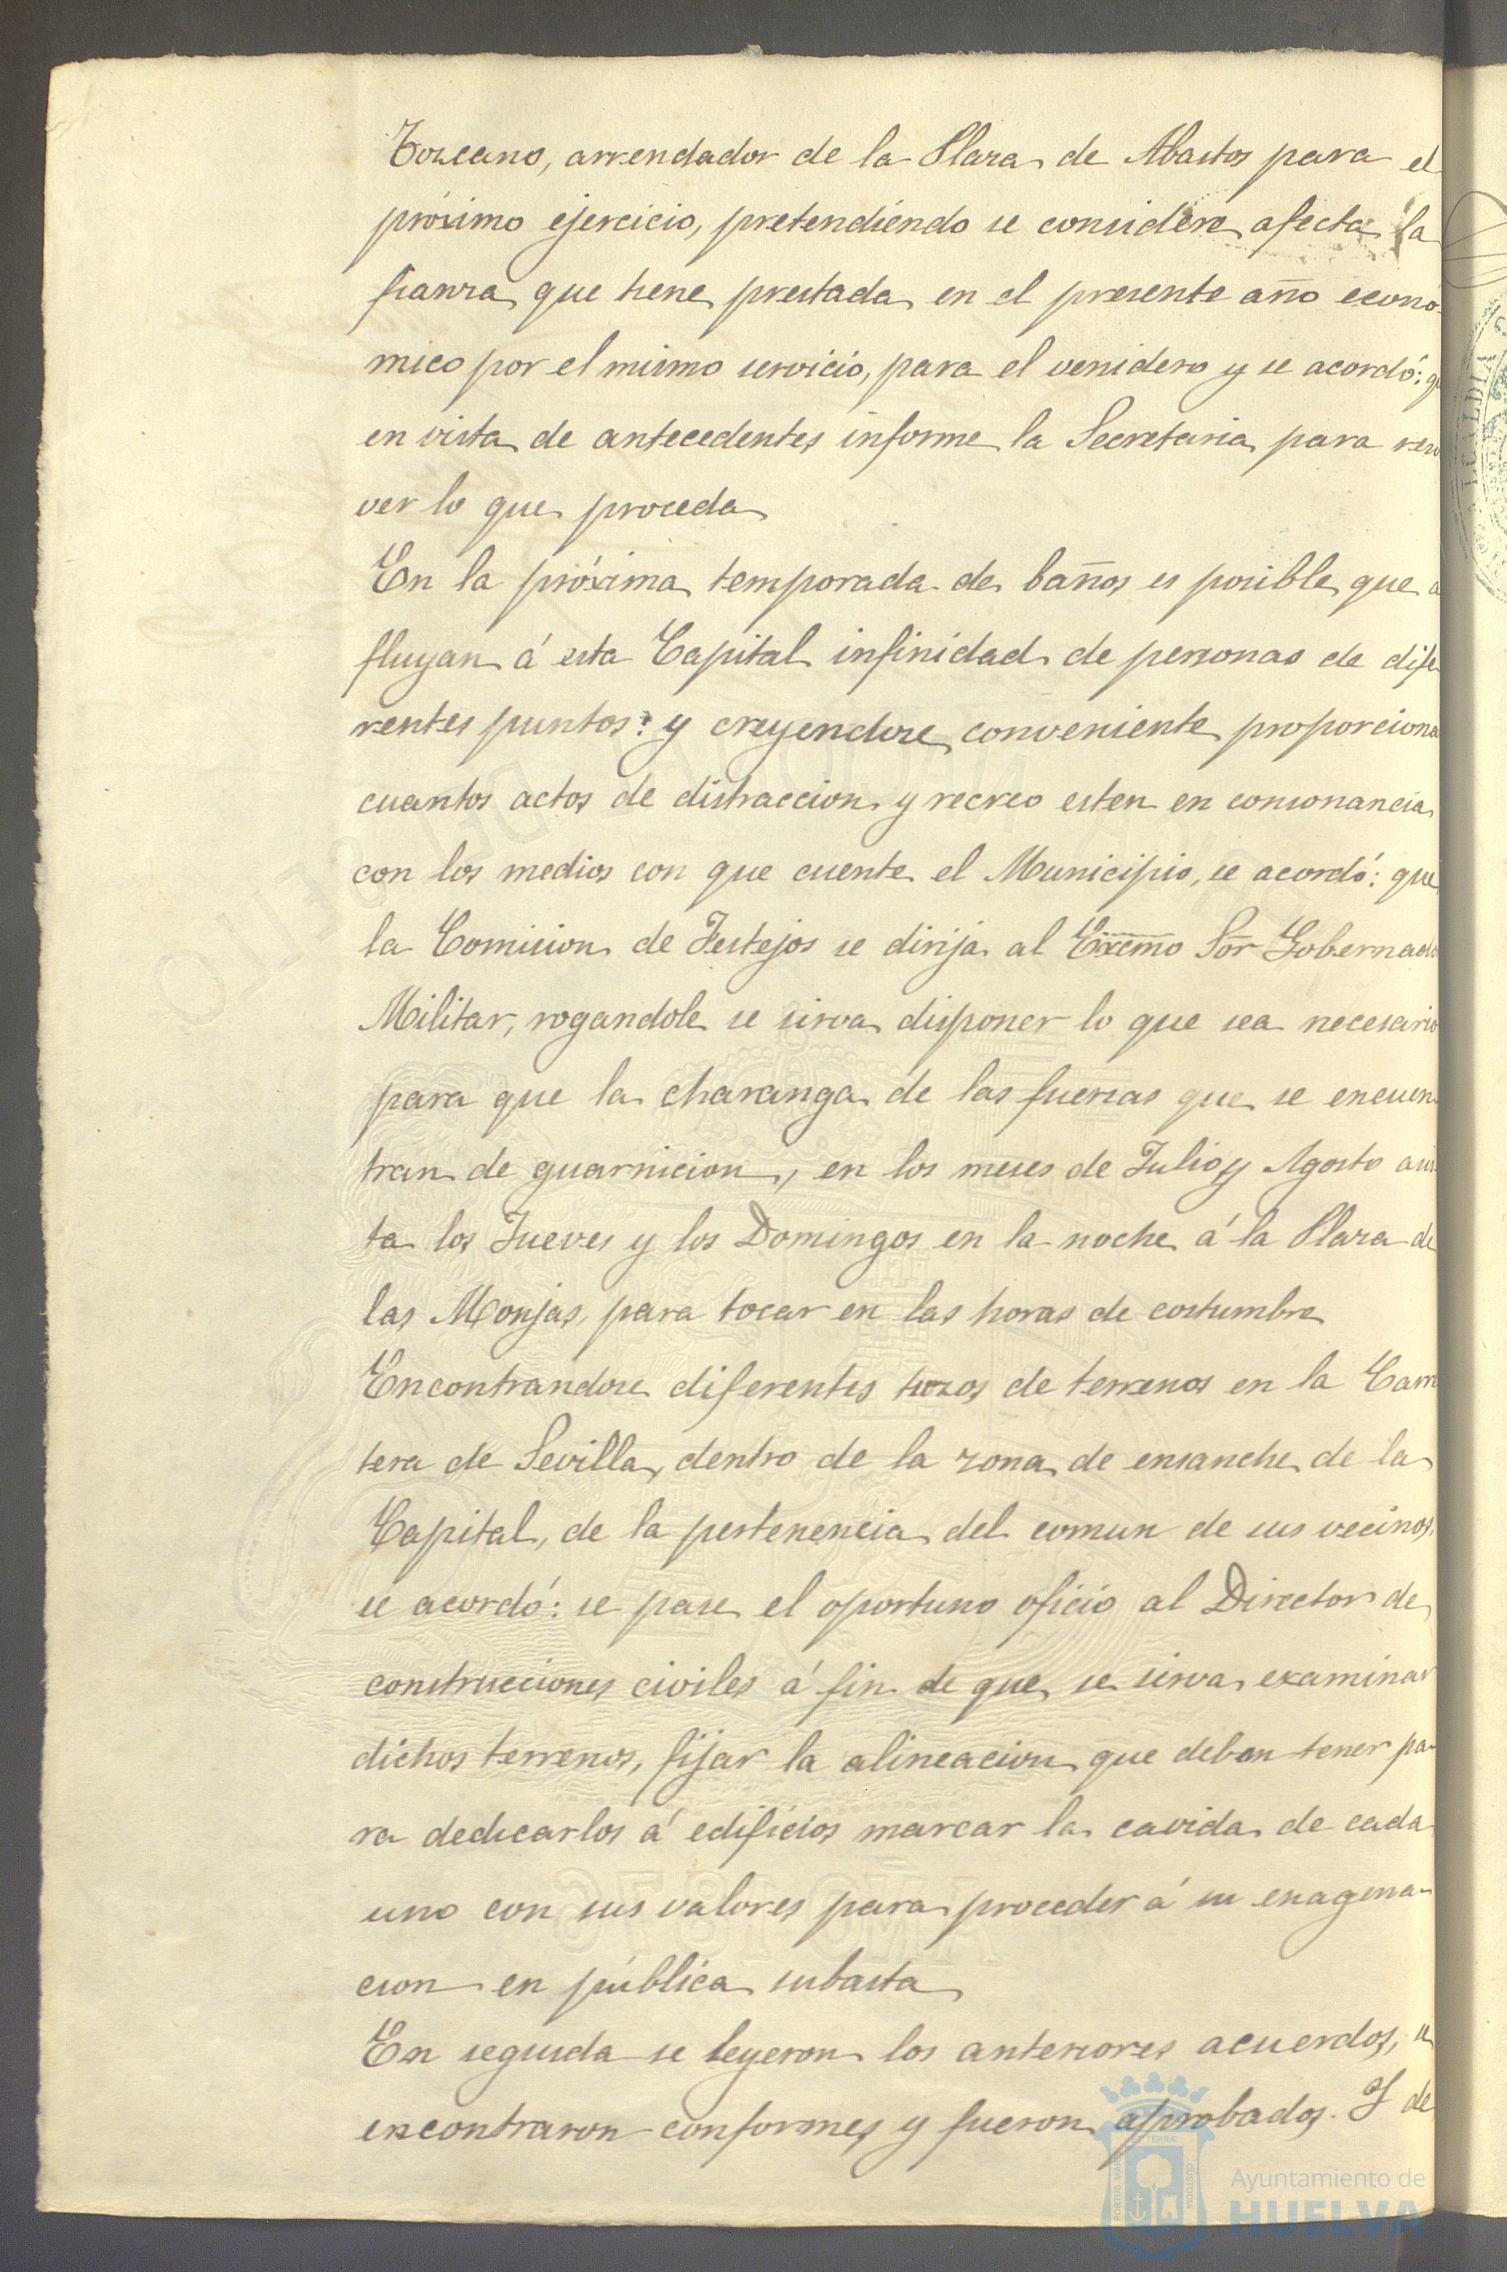 Toscano, arrendador de la Plaza de Abastos para el
próximo ejercicio, pretendiendo se considere afecta la
fianza que tiene prestada en el presente año econó-
mico por el mismo servicio, para el venidero y se acordó: q
en vista de antecedentes informe la Secretaria para reso
ver lo que proceda
En la próxima temporada de baños es posible que a
fluyan á esta Capital infinidad de personas de dife
rentes puntos: y creyendose conveniente proporciona
cuantos actos de distraccion y recreo esten en consonancia
con los medios con que cuente el Municipio, se acordó: que
la Comision de Festejos se dirija al Excmo Sor Gobernado
Militar, rogandole se sirva disponer lo que sea necesario
para que la charanga de las fuerzas que se encuen
tran de guarnicion, en los meses de Julio y Agosto asis
ta los Jueves y los Domingos en la noche á la Plaza de
las Monjas, para tocar en las horas de costumbre
Encontrandose diferentes trozos de terrenos en la Carre
tera de Sevilla, dentro de la zona de ensanche de la
Capital, de la pertenencia del comun de sus vecinos,
se acordó: se pase el oportuno oficio al Director de
construcciones civiles á fin de que se sirva examinar
dichos terrenos, fijar la alineacion que deban tener pa-
ra dedicarlos á edificios marcar la cavida de cada
uno con sus valores para proceder á su enagena-
cion en pública subasta
En seguida se leyeron los anteriores acuerdos, se
encontraron conformes y fueron aprobados. Y de
Ayuntamiento de
HUELVA